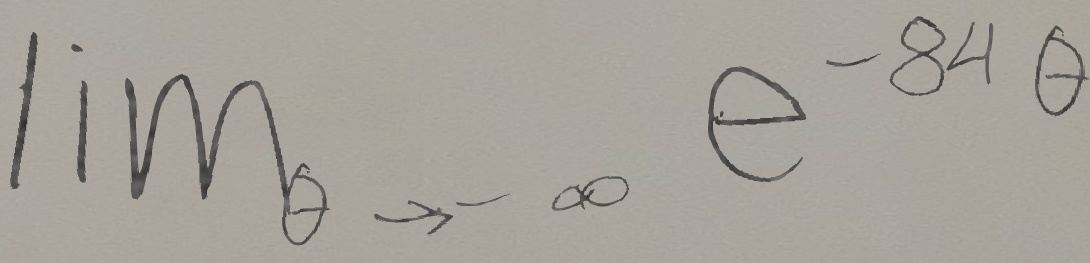 lim_{θ → -∞} e^{-84θ}